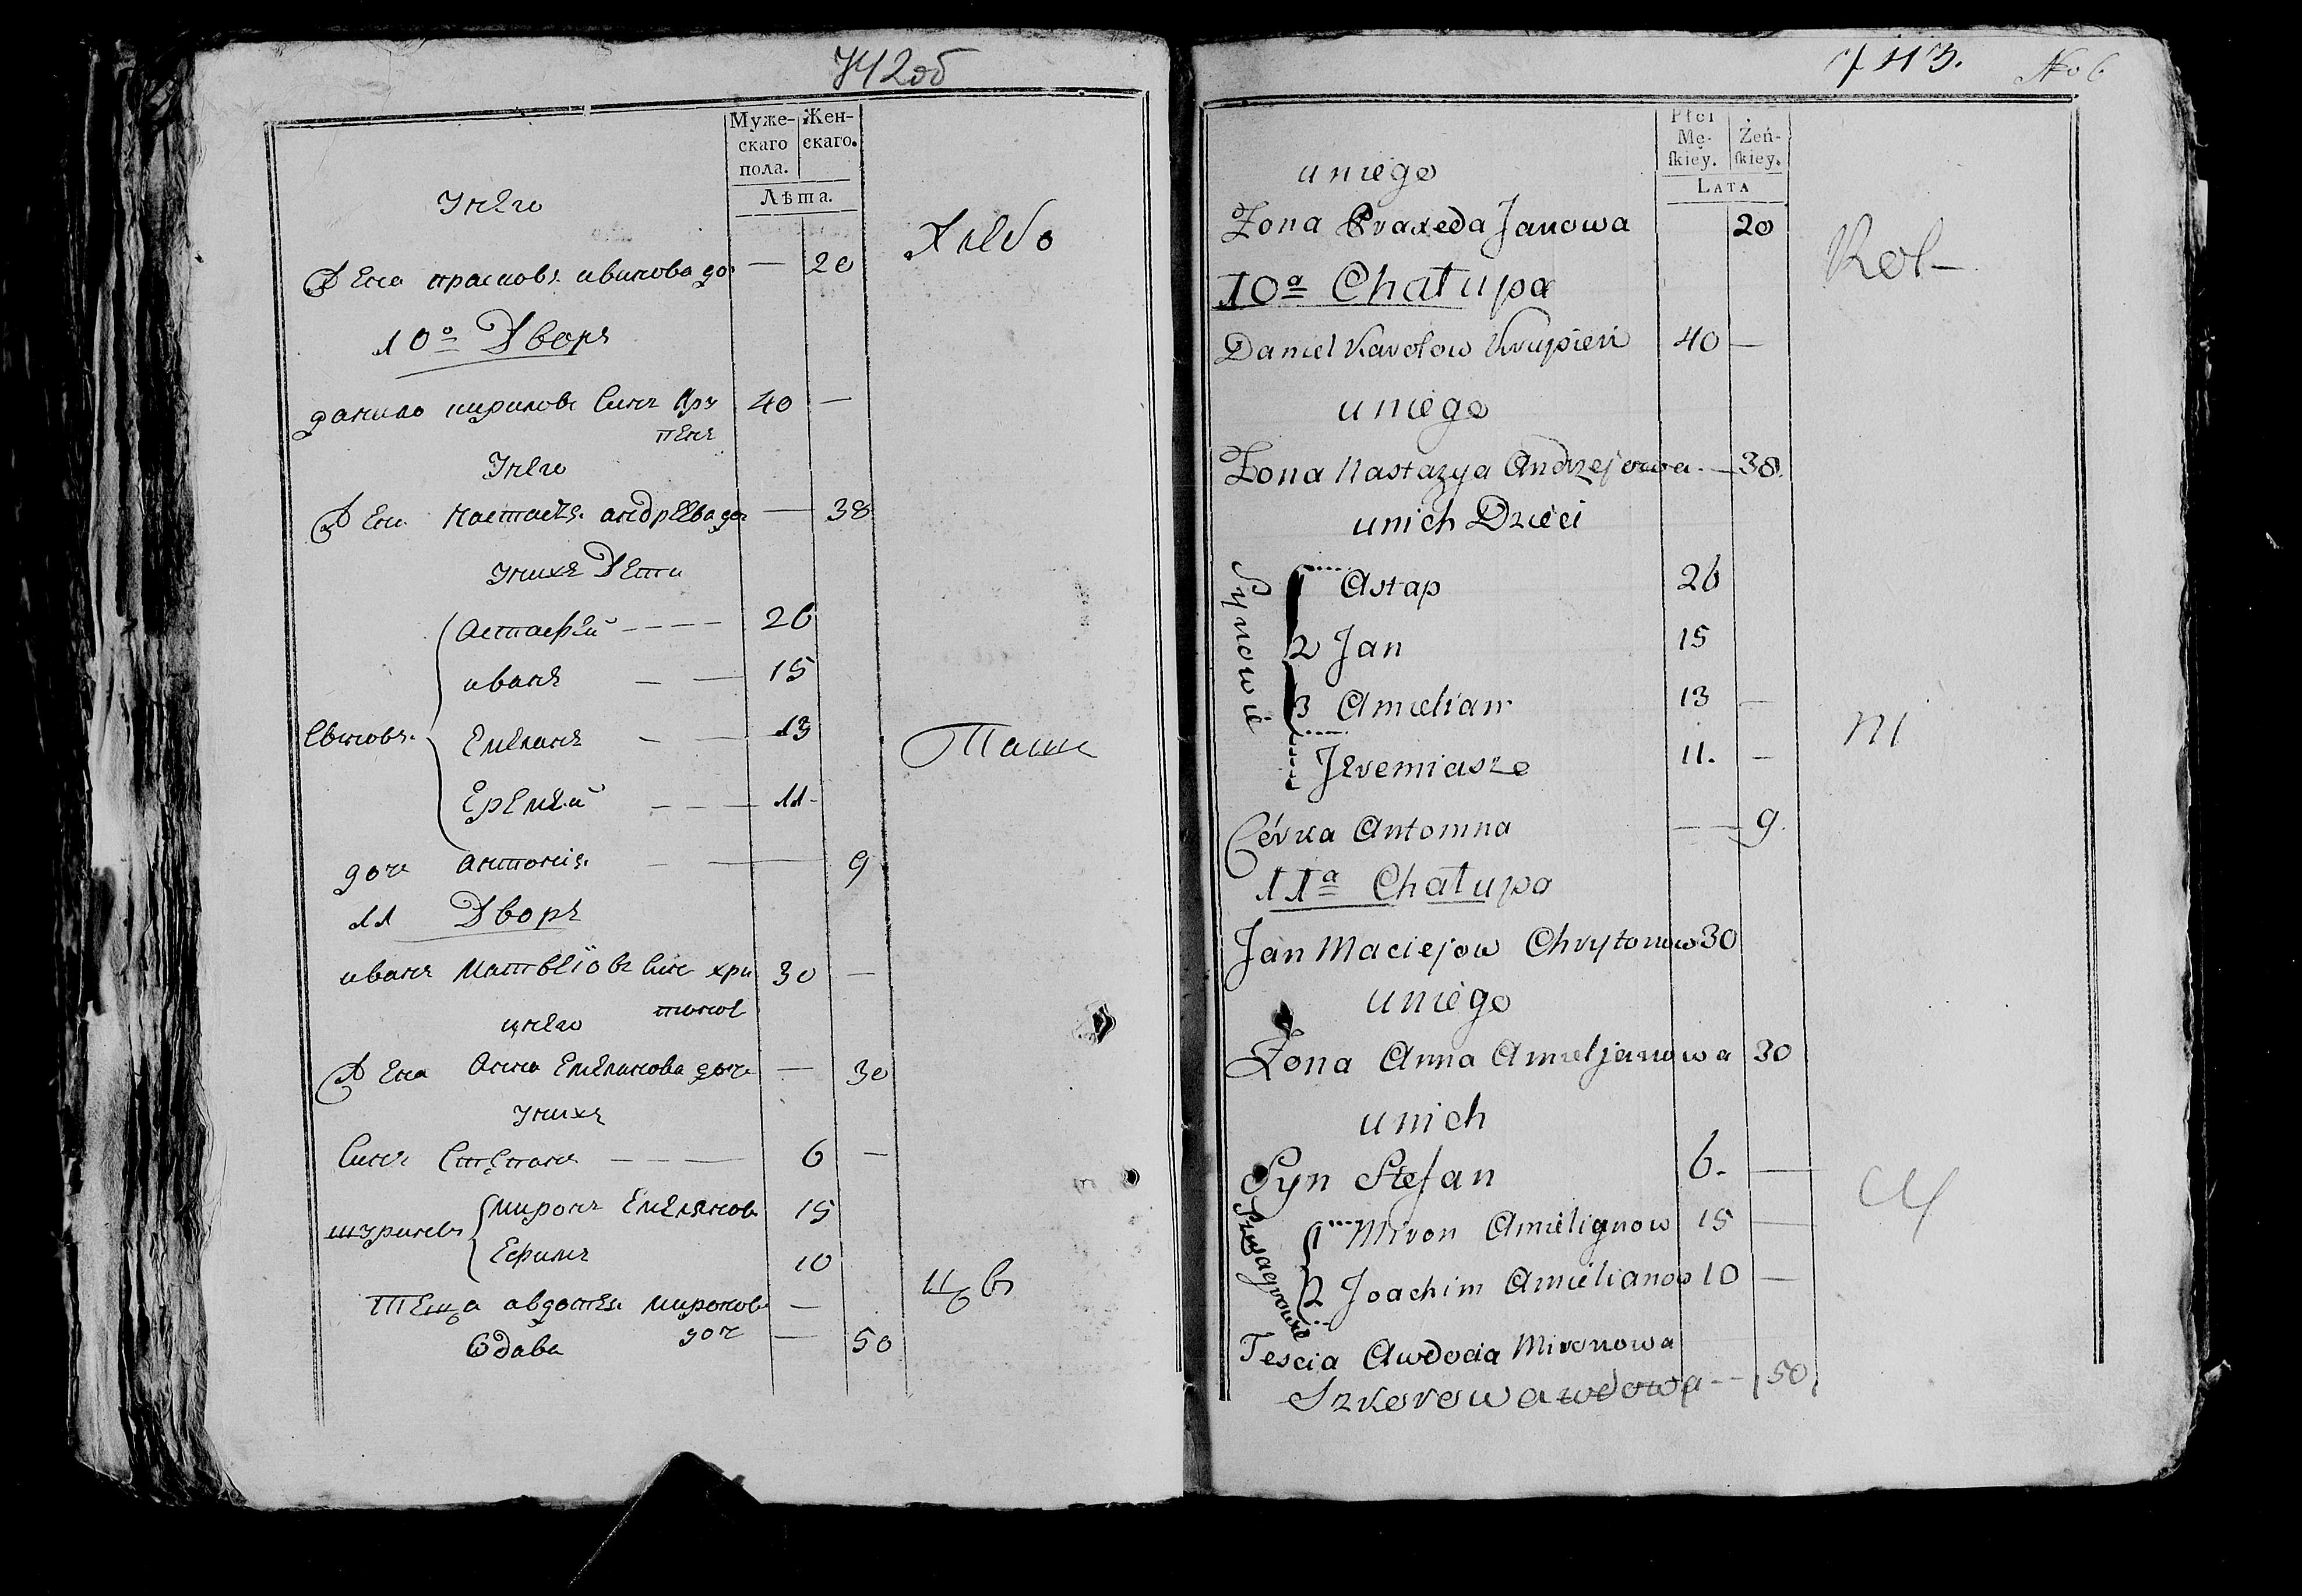 742об
Муже- Жен-
скаго скаго.
пола.
Лѣта.
Унего
Жена прасковя ивинова до — 20
10о Дворъ
данило кирилов Синъ Кру 40 —
пенъ
Унего
Жена настасея андреева до — 38
Унихъ Дети
астафѣй 26
иванъ 15
Синовя
Емелянъ 13
Еремѣй 11
доч антонія 9
11 Дворъ
иванъ матвеіовъ Синъ хри 30 —
тонов
унего
Жена Анна Емелянова доч — 30
Унихъ
Синъ Степанъ 6 —
шуринов миронъ Емелянов 15
Ефимъ 10
Теща авдотея миронов —
Вдава доч — 50
743. No 6
Płci
Mę- Żeń-
ſkiey. ſkiey.
LATA
u niego
Zona Praxeda Janowa 20
10a Chałupa
Daniel Karolow Krupień 40 —
u niego
Zona Nastazya Andrzejowa 38
u nich Dzieci
Synowie
1 Astap 26
2 Jan 15
3 Amielian 13 —
Jeremiasze 11. —
Córka Antonina 9.
11a Chałupa
Jan Maciejow Chrytonow 30
u niego
Zona Anna Amieljanowa 30
u nich
Syn Stefan 6. —
Szwagrowie
1 Miron Amielianow 15 —
2 Joachim Amielianow 10 —
Tescia Awdocia Mironowa
wdowa 50